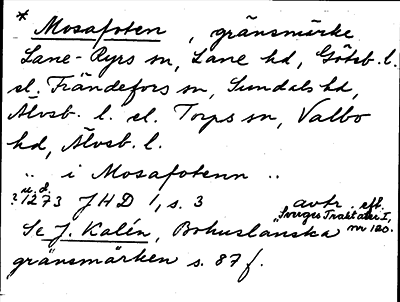 * Mosafoten, gränsmärke
Lane-Ryrs sn, Lane hd, Göteb. l.
el. Frändefors sn, Sundals hd,
Älvsb. l. el. Torps sn, Valbo
hd, Älvsb. l.
.. i Mosafotenn ..
u. d.
? 1273 JHD 1, s. 3
avtr. eft.
"Sveriges Traktater I,
nr 120.
Se J. Kalén, Bohuslänska
gränsmärken s. 87 f.